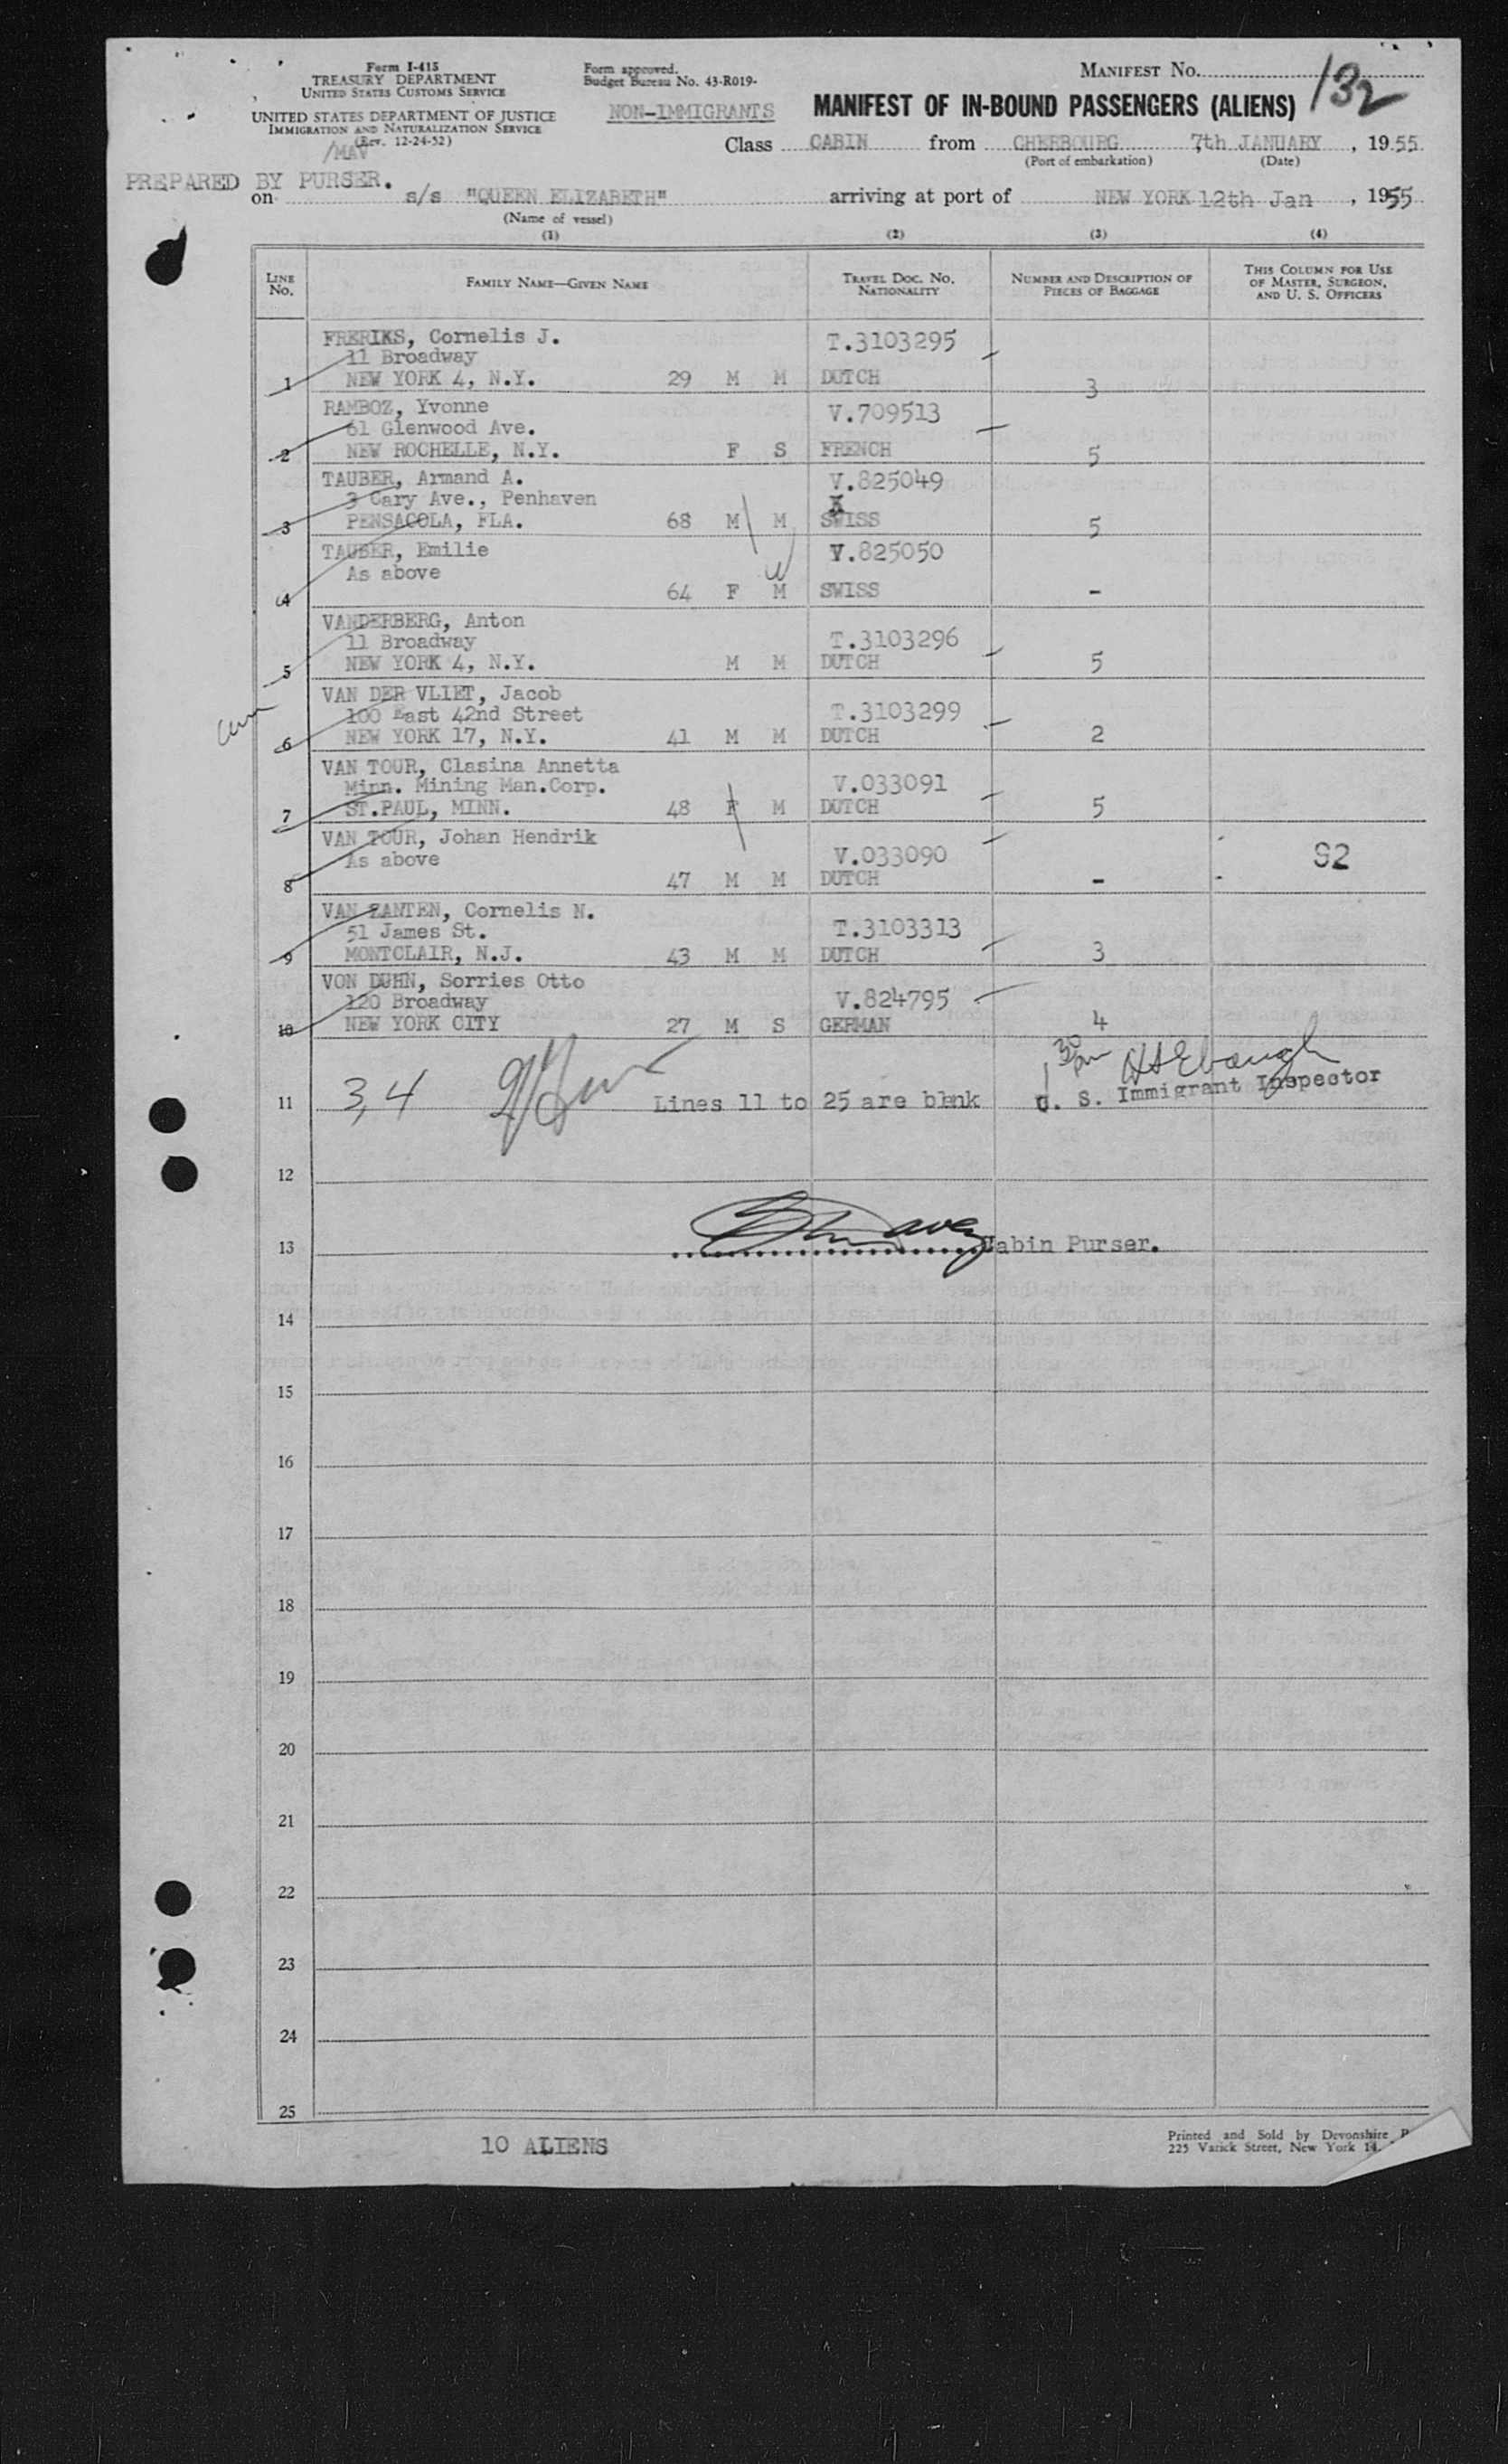 Form I-415
TREASURY DEPARTMENT
UNITED STATES CUSTOMS SERVICE
UNITED STATES DEPARTMENT OF JUSTICE
IMMIGRATION AND NATURALIZATION SERVICE
(Rev. 12-24-52)
/MAV
Form approved.
Budget Bureau No. 43-R019-
NON-IMMIGRANTS
MANIFEST NO. 132
MANIFEST OF IN-BOUND PASSENGERS (ALIENS)
Class CABIN from CHERBOURG 7th JANUARY, 1955
(Port of embarkation) (Date)
PREPARED BY PURSER.
on s/s "QUEEN ELIZABETH" arriving at port of NEW YORK 12th Jan, 1955
(Name of vessel)
(1) (2) (3) (4)
LINE NO. FAMILY NAME—GIVEN NAME TRAVEL DOC. NO. NATIONALITY NUMBER AND DESCRIPTION OF PIECES OF BAGGAGE THIS COLUMN FOR USE OF MASTER, SURGEON, AND U. S. OFFICERS
FRERIKS, Cornelis J. T.3103295
11 Broadway
1 NEW YORK 4, N.Y. 29 M M DUTCH 3
RAMBOZ, Yvonne V.709513
61 Glenwood Ave.
2 NEW ROCHELLE, N.Y. F S FRENCH 5
TAUBER, Armand A. V.825049
3 Cary Ave., Penhaven
3 PENSACOLA, FLA. 68 M M SWISS 5
TAUBER, Emilie V.825050
As above
4 64 F M SWISS -
VANDERBERG, Anton
11 Broadway T.3103296
5 NEW YORK 4, N.Y. M M DUTCH 5
VAN DER VLIET, Jacob
100 East 42nd Street T.3103299
6 NEW YORK 17, N.Y. 41 M M DUTCH 2
VAN TOUR, Clasina Annetta
Minn. Mining Man.Corp. V.033091
7 ST.PAUL, MINN. 48 F M DUTCH 5
VAN TOUR, Johan Hendrik
As above V.033090 S2
8 47 M M DUTCH -
VAN ZANTEN, Cornelis N.
51 James St. T.3103313
9 MONTCLAIR, N.J. 43 M M DUTCH 3
VON DUHN, Sorries Otto
120 Broadway V.824795
10 NEW YORK CITY 27 M S GERMAN 4
1 30 pm HSEbaugh
11 3,4 Lines 11 to 25 are blnk U. S. Immigrant Inspector
12
13 Cabin Purser.
14
15
16
17
18
19
20
21
22
23
24
25
10 ALIENS
Printed and Sold by Devonshire
225 Varick Street, New York 14